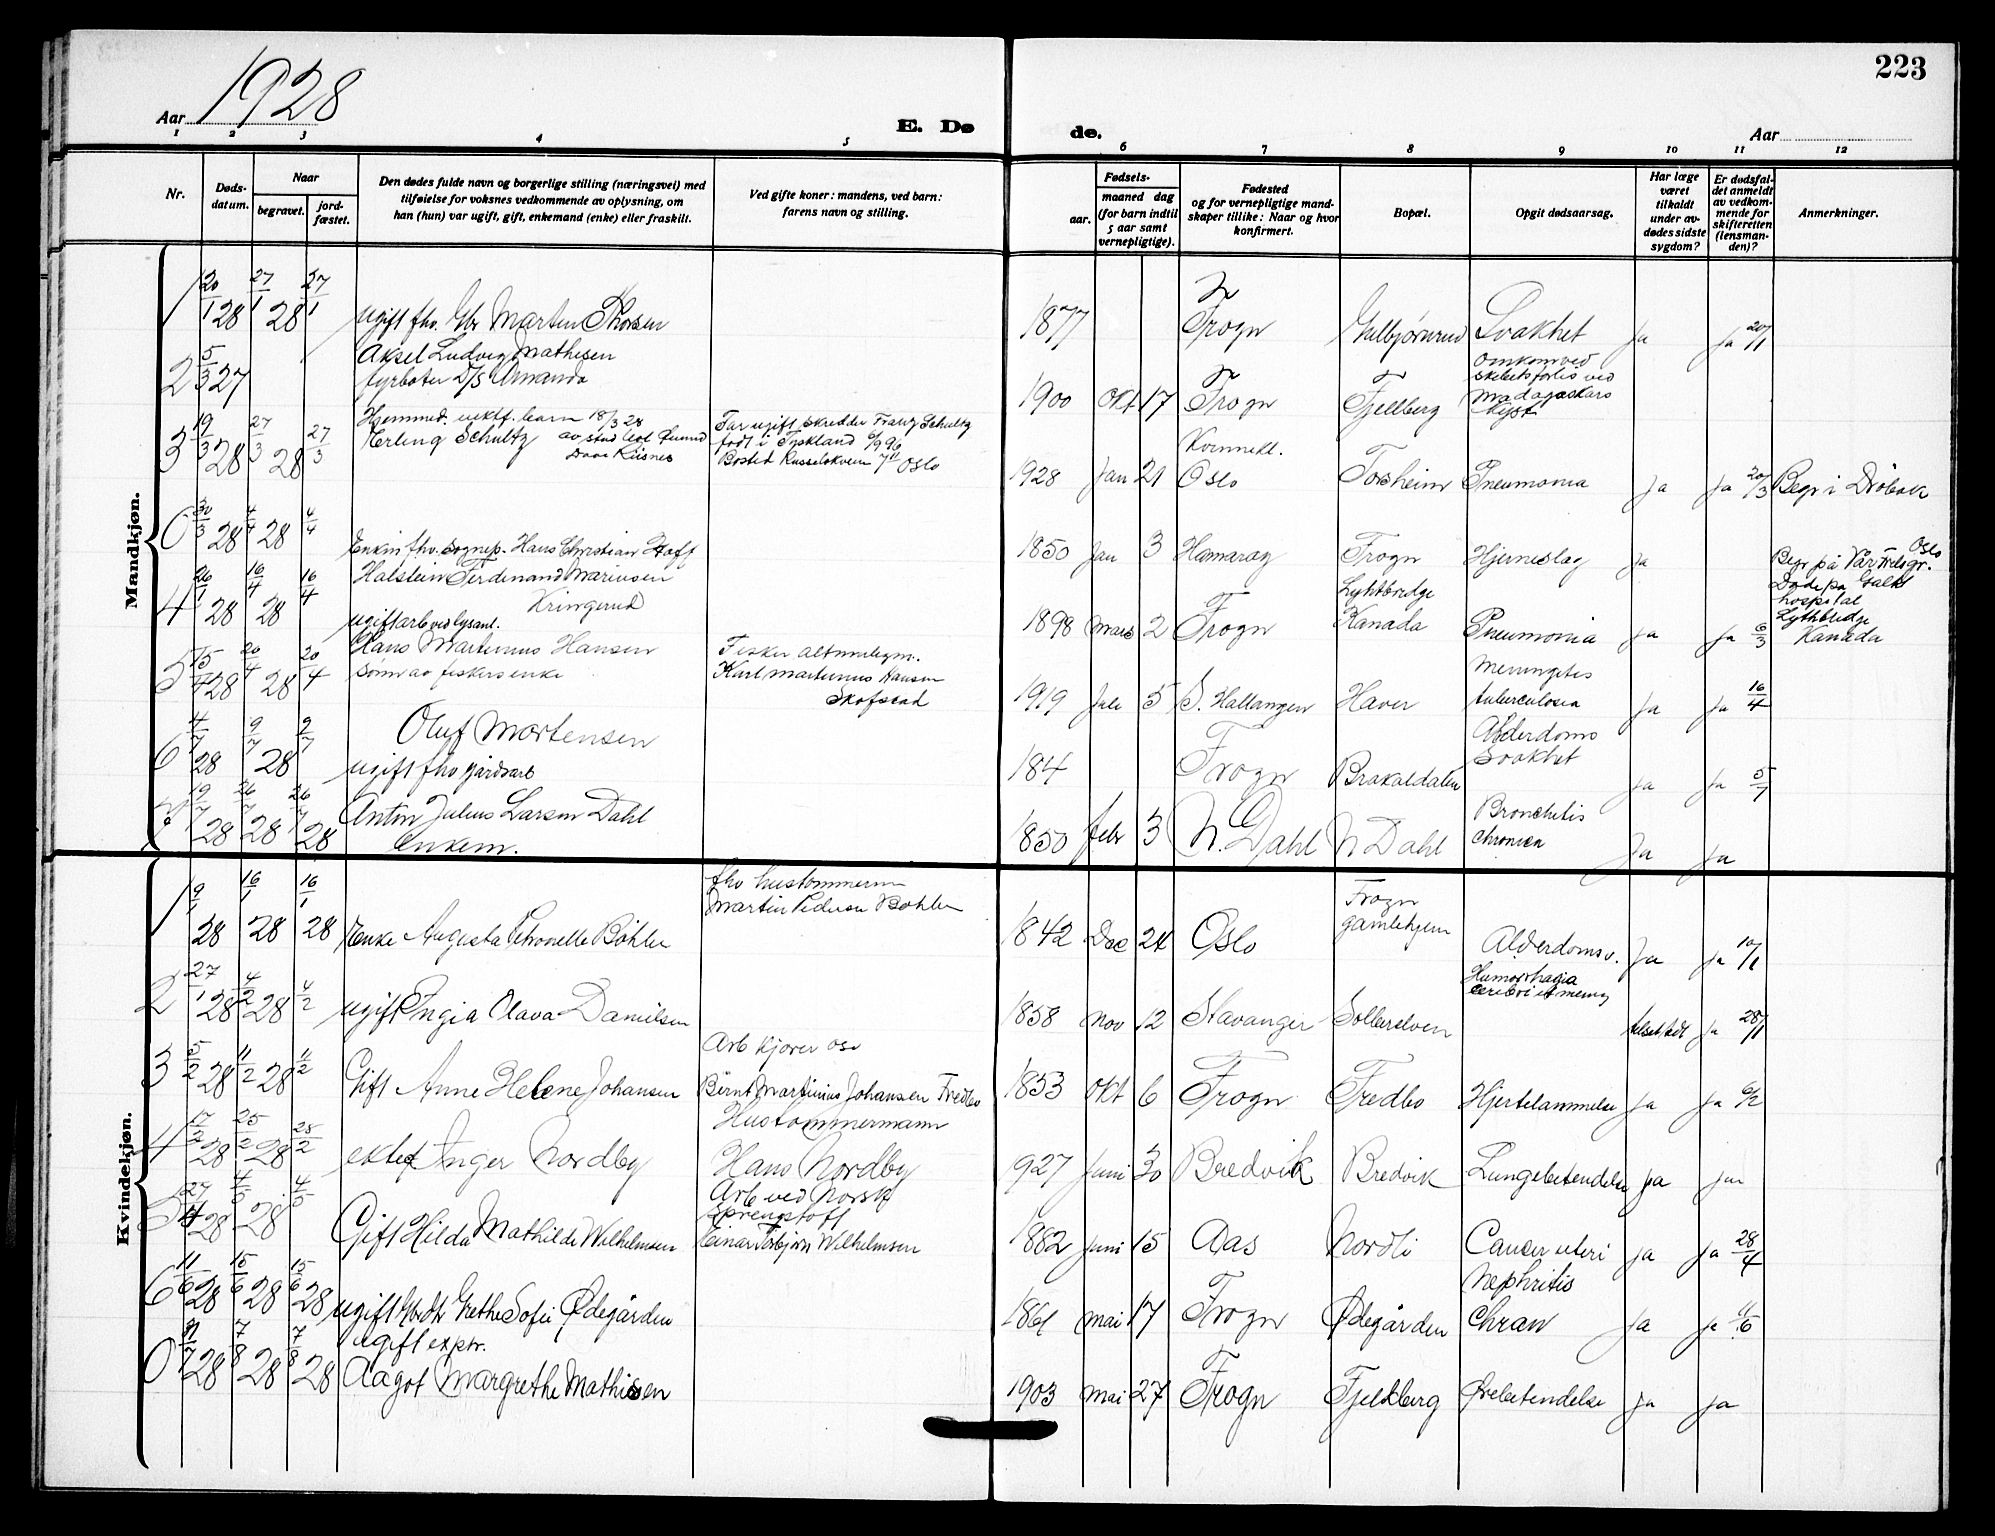 223
Aar 1928
E. Dø de.
Aar
1 2 3 4 5 6 7 8 9 10 11 12
Nr.
Døds-datum.
Naar
begravet.
jord-fæstet.
Den dødes fulde navn og borgerlige stilling (næringsvei) med
tilføielse for voksnes vedkommende av oplysning, om
han (hun) var ugift, gift, enkemand (enke) eller fraskilt.
Ved gifte koner: mandens, ved barn:
farens navn og stilling.
Fødsels-
aar.
maaned dag
(for barn indtil
5 aar samt
vernepligtige).
Fødested
og for vernepligtige mand-
skaper tillike: Naar og hvor
konfirmert.
Bopæl.
Opgit dødsaarsag.
Har læge
været
tilkaldt
under av-
dødes sidste
sygdom?
Er dødsfal-
det anmeldt
av vedkom-
mende for
skifteretten
(lensman-
den)?
Anmerkninger.
Mandkjøn.
1 20/1 28 27/1 28 27/1 ugift fhv. Gbr Martin Thorsen 1877 Frogn Svakhet Ja Ja 20/1
2 5/3 27 Aksel Ludvig Mathisen
fyrbøter D/S Amanda 1900 Okt 17 Frogn Fjellberg Omkom ved
skibsforlis ved
Madagaskars
Kyst
3 19/3 28 27/3 28 27/3 Hjemmed. uektf. barn 18/3 28
Erling Schultz Far ugift skredder Franz Schultz
født i Tyskland
Oslo 1928 Jan 21 Oslo Torsheim Pneumonia Ja Ja 20/3 Begr i Drøbak
0 30/3 28 4/4 28 4/4 Enkm fhv. sognep. Hans Christian Hoff 1850 Jan 3 Hamarøy Frogn Hjerneslag Ja Begr på Vår Frelsgr. Oslo
4 26/1 28 16/4 28 16/4 Halstein Ferdinand Marinsen
Kringerud
ugift arb ved lysanl. 1898 Mars 2 Frogn Lythbredge
Kanada Pneumonia Ja Ja 6/3 Døde på Galt
hospital
Lythbridge
Kanada
5 15/4 28 20/4 28 20/4 Hans Martinius Hansen
sønn av fiskers enke Fisker
Karl Martinius Hansen
Skofstad 1919 Juli 5 S. Hallangen Haver Meningitis
tuberculosia Ja Ja 16/4
6 4/7 28 9/7 28 9/7 Oluf Mortensen
ugift fhv gårdsarb 184 Frogn Brakaldalen Alderdoms
svakhet Ja Ja 5/7
7 19/7 28 26/7 28 26/7 28 Anton Julius Larsen Dahl
Enkem. 1850 Febr 3 N. Dahl N Dahl Bronchitis
chronica Ja Ja
Kvindekjøn.
1 9/1 28 16/1 28 16/1 28 Enke Augusta Petronelle Bøhler fhv hustømmerm
Martin Pedersen Bøhler 1842 Dec 24 Oslo Frogn
gamlehjem Alderdomsv. Ja Ja 10/1
2 27/1 28 4/2 28 4/2 ugift Ingia Olava Danielsen 1858 Nov 12 Stavanger Sollerelven Hæmorrhagia
cerebri et mening Ja 28/1
3 5/2 28 11/2 28 11/2 Gift Anne Helene Johansen Arb kjører osv
Bernt Martinius Johansen Fredbo 1853 Okt 6 Frogn Fredbo Hjertelammelse Ja Ja 6/2
4 17/2 28 25/2 28 25/2 ektef Inger Nordby Hustømmermann
Hans Nordby 927 Juni 30 Bredvik Bredvik Lungebetendelse Ja Ja
5 27/4 28 4/5 28 4/5 Gift Hilda Mathilde Wilhelmsen Arb ved Norsk
Sprengstoff
Einar Torbjørn Wilhelmsen 1882 Juni 15 Aas Nordli Cancer uteri Ja Ja 28/4
6 11/6 28 15/6 28 15/6 28 ugift Grethe Sofie Ødegården 1861 Mai 17 Frogn Ødegården Nephritis
Chron Ja Ja
0 31/7 28 7/8 28 7/8 28 ugift exptr.
Aagot Margrethe Mathisen 1903 Mai 27 Frogn Fjellberg Ørebetendelse Ja Ja